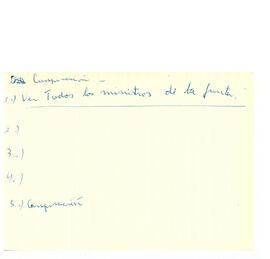 Conspiración. –
1.-) Ver Todos los ministros de la junta.
2.-)
3.-)
4.-)
5.-) Conspiración